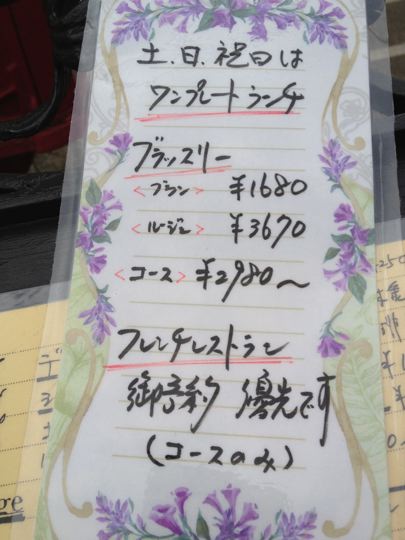 土.日.祝日は
ワンプレートランチ
ブラッスリー
<ブラン> ¥1680
<ルージュ> ¥3670
<コース> ¥2980〜
フレンチレストラン
御予約 優先です
(コースのみ)